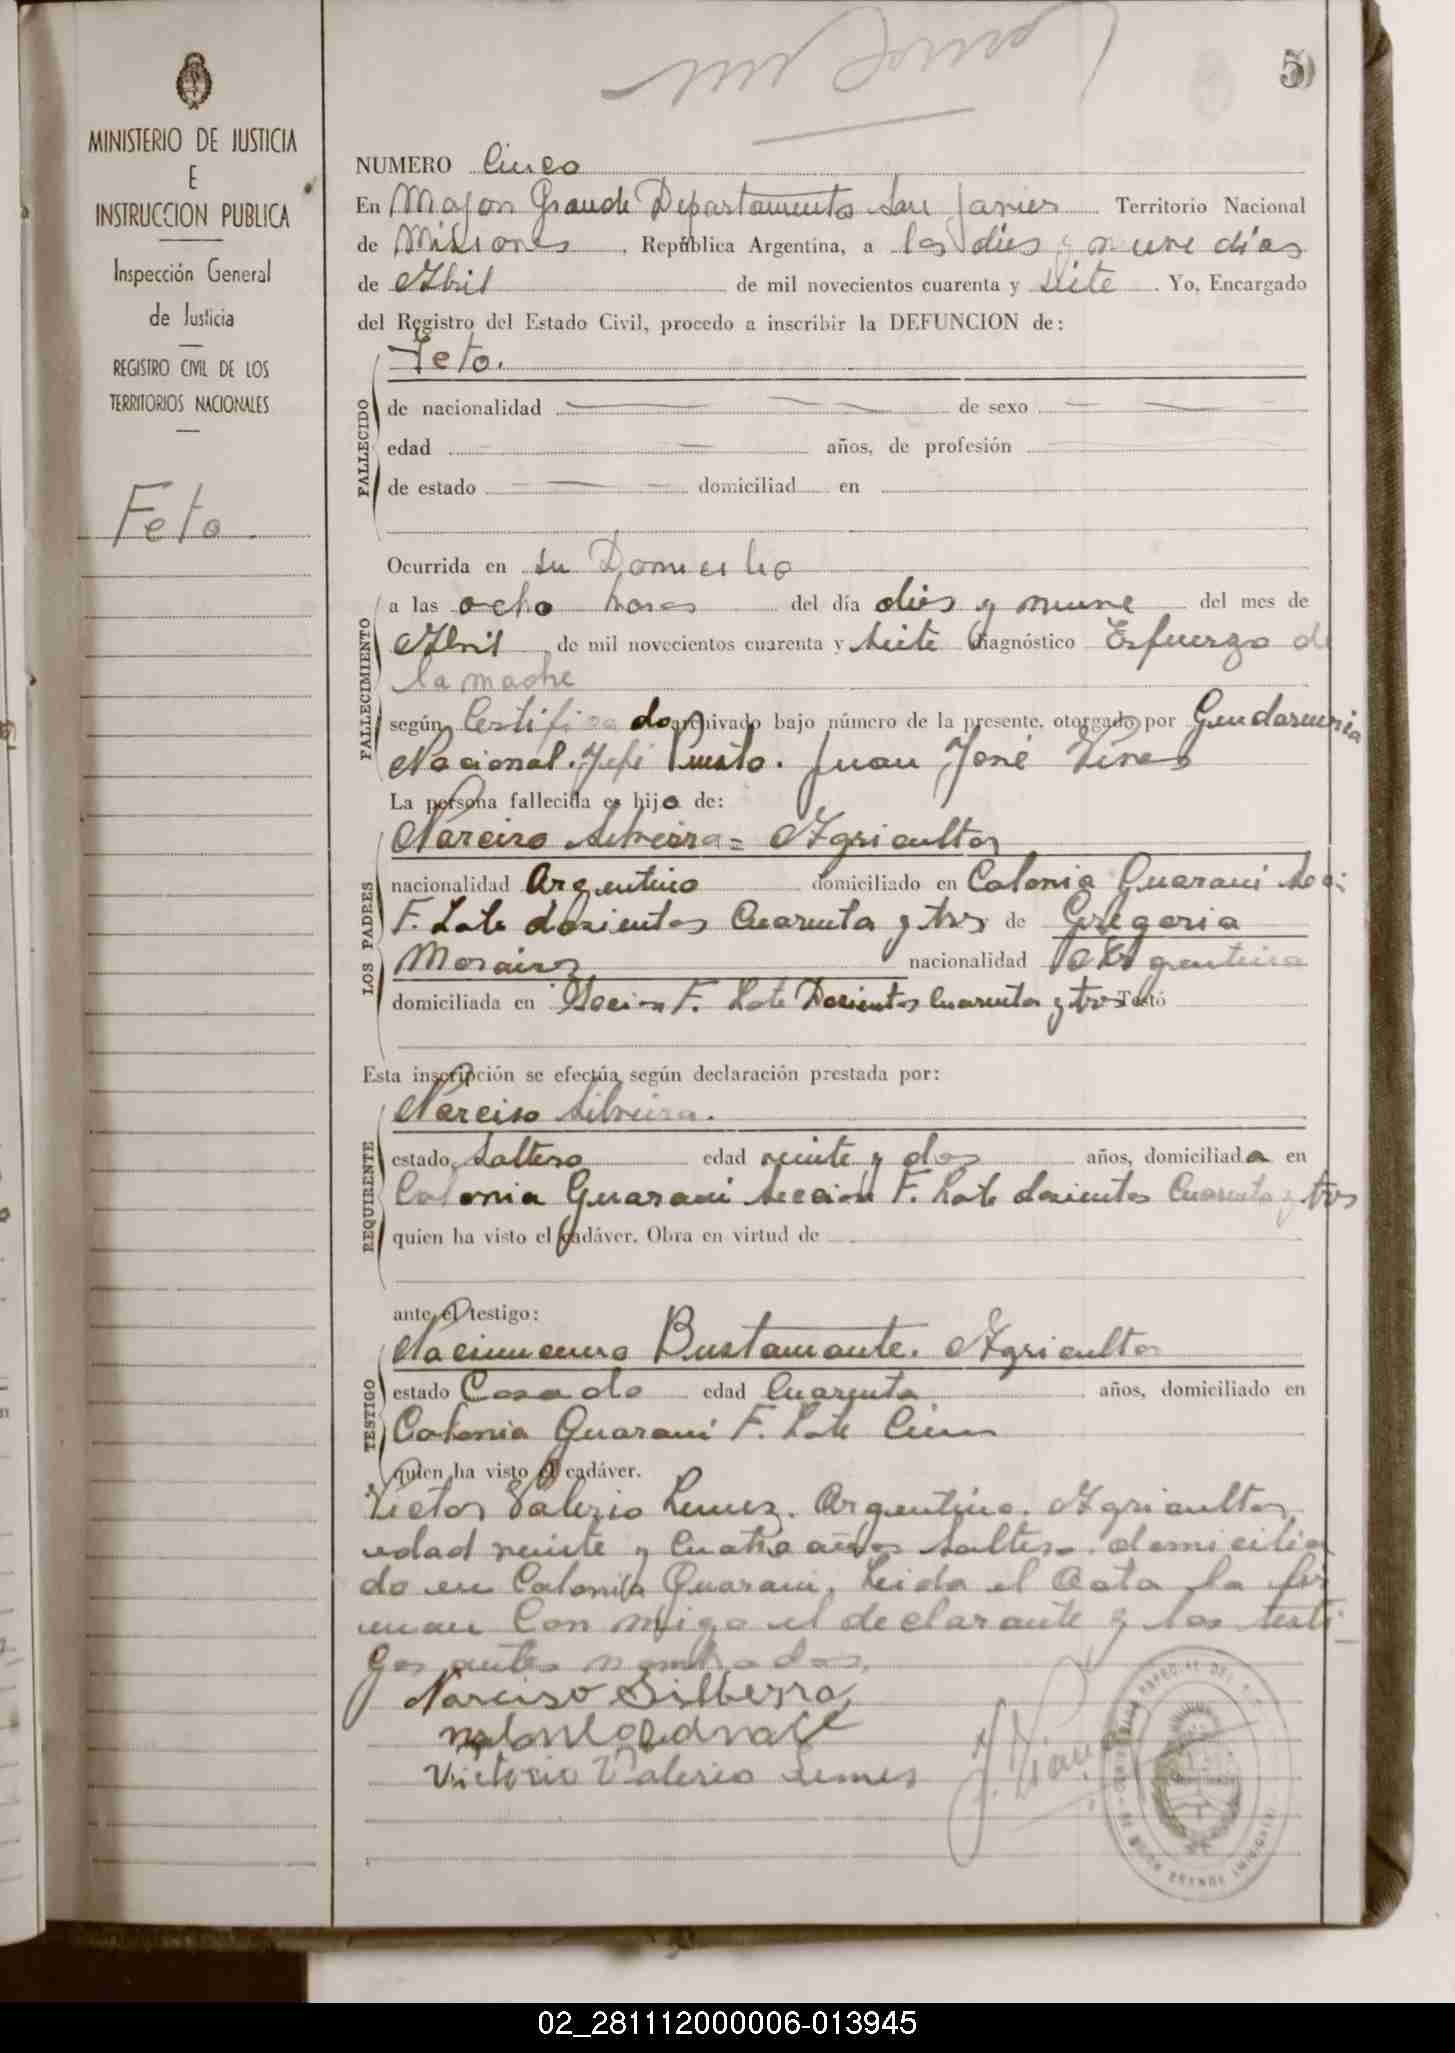 5
MINISTERIO DE JUSTICIA
E
INSTRUCCION PUBLICA
Inspección General
de Justicia
REGISTRO CIVIL DE LOS
TERRITORIOS NACIONALES
Feto.
NUMERO Cinco
En Mojon Grande Departamento San Javier Territorio Nacional
de Misiones, República Argentina, a los dies y nueve dias
de Abril de mil novecientos cuarenta y siete. Yo, Encargado
del Registro del Estado Civil, procedo a inscribir la DEFUNCION de:
Feto.
FALLECIDO
de nacionalidad de sexo
edad años, de profesión
de estado domiciliad en
FALLECIMIENTO
Ocurrida en su Domicilio
a las ocho horas del día dies y nueve del mes de
Abril de mil novecientos cuarenta y siete diagnóstico Esfuerzo de
la madre
según Certificado archivado bajo número de la presente, otorgado por Gendarmeria
Nacional. Jefe Puesto. Juan José
La persona fallecida es hijo de:
LOS PADRES
Narciso Silveira = Agricultor
nacionalidad Argentino domiciliado en Colonia Guarani Sec:
F. Lote docientos Cuarenta y tres de Gregoria
nacionalidad Argentina
domiciliada en Secion F. Lote Docientos Cuarenta y tres Testó
Esta inscripción se efectúa según declaración prestada por:
REQUIRENTE
Narciso Silveira.
estado Soltero edad veinte y dos años, domiciliada en
Colonia Guarani seccion F. Lote docientos Cuarenta y tres
quien ha visto el cadáver. Obra en virtud de
ante el testigo:
TESTIGO
Bustamante. Agricultor
estado Casado edad Cuarenta años, domiciliado en
Colonia Guarani F. Lote Cien
quien ha visto el cadáver.
Victor Valerio Lemez. Argentino. Agricultor
edad veinte y Cuatro años soltero. domicilia
do en Colonia Guarani. Leida el Acta la fir
man Con migo el declarante y los testi_
gos antes nombrados.
Narciso Silbeyra
Victorio Valerio Lemes
02_281112000006-013945